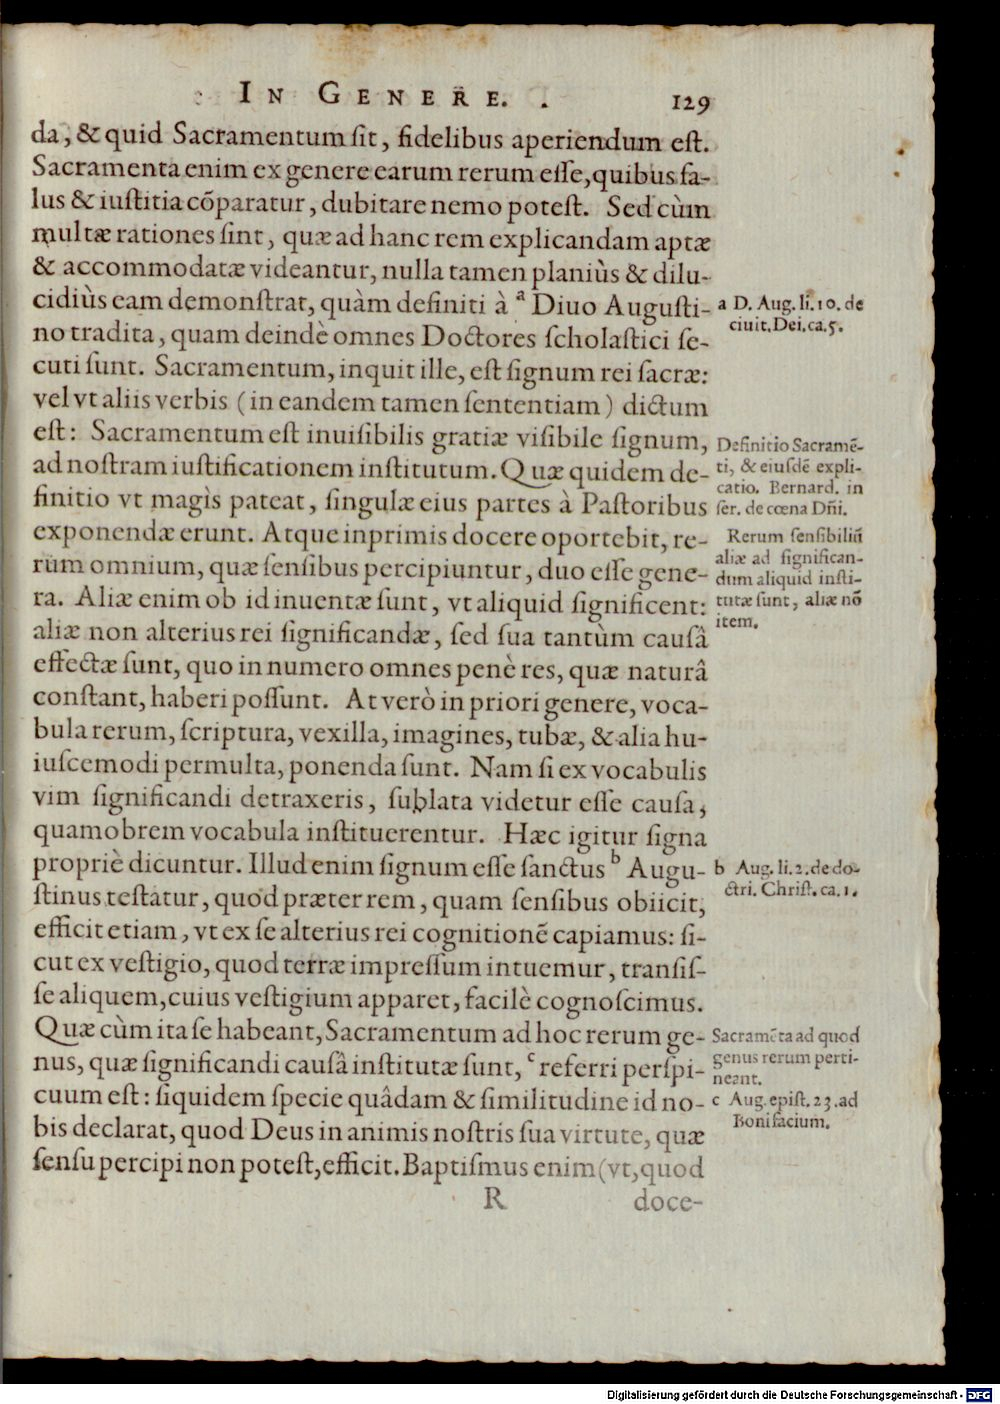 IN GENERE. 129
da, & quid Sacramentum ſit, fidelibus aperiendum eſt.
Sacramenta enim ex genere earum rerum eſſe, quibus ſa-
lus & iuſtitia cõparatur, dubitare nemo poteſt. Sed cùm
multæ rationes ſint, quæ ad hanc rem explicandam aptæ
& accommodatæ videantur, nulla tamen planiùs & dilu-
cidiùs eam demonſtrat, quàm definiti à ᵃ Diuo Auguſti-
no tradita, quam deindè omnes Doctores ſcholaſtici ſe-
cuti ſunt. Sacramentum, inquit ille, eſt ſignum rei ſacræ:
vel vt aliis verbis (in eandem tamen ſententiam) dictum
eſt: Sacramentum eſt inuiſibilis gratiæ viſibile ſignum,
ad noſtram iuſtificationem inſtitutum. Quæ quidem de-
finitio vt magìs pateat, ſingulæ eius partes à Paſtoribus
exponendæ erunt. Atque inprimis docere oportebit, re-
rum omnium, quæ ſenſibus percipiuntur, duo eſſe gene-
ra. Aliæ enim ob id inuentæ ſunt, vt aliquid ſignificent:
aliæ non alterius rei ſignificandæ, ſed ſua tantùm cauſâ
effectæ ſunt, quo in numero omnes penè res, quæ naturâ
conſtant, haberi poſſunt. At verò in priori genere, voca-
bula rerum, ſcriptura, vexilla, imagines, tubæ, & alia hu-
iuſcemodi permulta, ponenda ſunt. Nam ſi ex vocabulis
vim ſignificandi detraxeris, ſublata videtur eſſe cauſa,
quamobrem vocabula inſtituerentur. Hæc igitur ſigna
propriè dicuntur. Illud enim ſignum eſſe ſanctus ᵇ Augu-
ſtinus teſtatur, quod præter rem, quam ſenſibus obiicit,
efficit etiam, vt ex ſe alterius rei cognitionẽ capiamus: ſi-
cut ex veſtigio, quod terræ impreſſum intuemur, tranſiſ-
ſe aliquem, cuius veſtigium apparet, facilè cognoſcimus.
Quæ cùm ita ſe habeant, Sacramentum ad hoc rerum ge-
nus, quæ ſignificandi cauſâ inſtitutæ ſunt, ᶜ referri perſpi-
cuum eſt: ſiquidem ſpecie quâdam & ſimilitudine id no-
bis declarat, quod Deus in animis noſtris ſua virtute, quæ
ſenſu percipi non poteſt, efficit. Baptiſmus enim (vt, quod
R doce-
a D. Aug. li. 10. de
ciuit. Dei. ca. 5.
Definitio Sacramẽ-
ti, & eiuſdẽ expli-
catio. Bernard. in
ſer. de cœna Dñi.
Rerum ſenſibiliũ
aliæ ad ſignifican-
dum aliquid inſti-
tutæ ſunt, aliæ nõ
item.
b Aug. li. 2. de do-
ctri. Chriſt. ca. 1.
Sacramẽta ad quod
genus rerum perti-
neant.
c Aug. epiſt. 23. ad
Bonifacium.
Digitalisierung gefördert durch die Deutsche Forschungsgemeinschaft - DFG